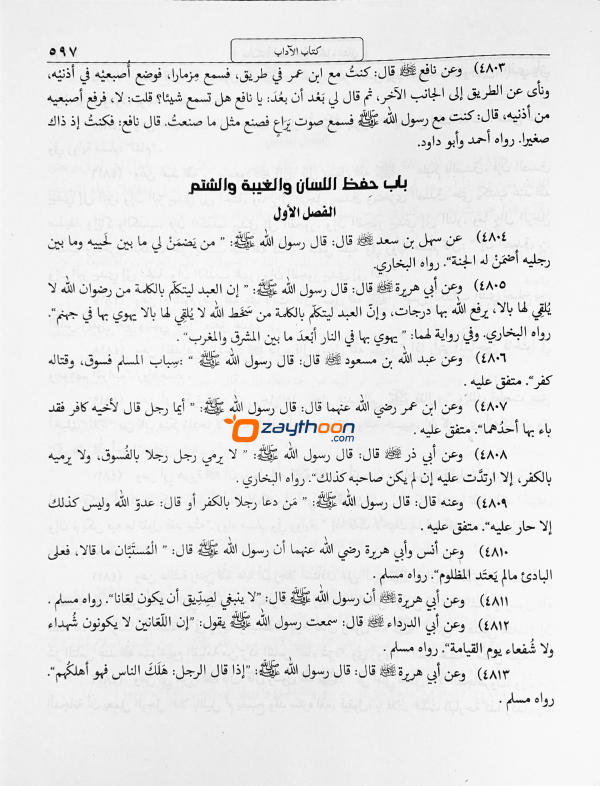 كتاب الآداب
٥٩٧
٤٨٠٣) وعن نافع ﵁ قال: كنتُ مع ابن عمر في طريق، فسمع مِزمارا، فوضع أُصبعيْه في أذنيْه،
ونأى عن الطريق إلى الجانب الآخر، ثم قال لي بَعْد أن بعُد: يا نافع هل تسمع شيئا؟ قلت: لا، فرفع أصبعيه
من أذنيه، قال: كنت مع رسول الله ﷺ فسمع صوت يَراع فصنع مثل ما صنعتُ. قال نافع: فكنتُ إذ ذاك
صغيرا. رواه أحمد وأبو داود.
باب حِفظ اللسان والغيبة والشتم
الفصل الأول
٤٨٠٤) عن سهل بن سعد ﵁ قال: قال رسول الله ﷺ: ” من يَضمَنْ لي ما بين لَحييه وما بين
رجليه أضمَنْ له الجنة“. رواه البخاري.
٤٨٠٥) وعن أبي هريرة ﵁ قال: قال رسول الله ﷺ: ” إن العبد ليتكلّم بالكلمة من رضوان الله لا
يُلقِي لها بالا، يرفع الله بها درجات، وإنّ العبد ليتكلّم بالكلمة من سَخَط الله لا يُلقِي لها بالا يهوي بها في جهنم“.
رواه البخاري. وفي رواية لهما: ” يهوي بها في النار أبْعدَ ما بين المشرق والمغرب“ .
٤٨٠٦) وعن عبد الله بن مسعود ﵁ قال: قال رسول الله ﷺ ” :سِباب المسلم فسوق، وقتاله
كفر“. متفق عليه .
٤٨٠٧) وعن ابن عمر رضي الله عنهما قال: قال رسول الله ﷺ: ” أيما رجل قال لأخيه كافر فقد
باء بها أحدُهما“. متفق عليه .
Ozaythoon
.com
٤٨٠٨) وعن أبي ذر ﵁ قال: قال رسول الله ﷺ: ” لا يرمي رجل رجلا بالفُسوق، ولا يرميه
بالكفر، إلا ارتدَّت عليه إن لم يكن صاحبه كذلك“. رواه البخاري .
٤٨٠٩) وعنه قال: قال رسول الله ﷺ: ” مَن دعا رجلا بالكفر أو قال: عدوّ الله وليس كذلك
إلا حار عليه“. متفق عليه .
٤٨١٠) وعن أنس وأبي هريرة رضي الله عنهما أن رسول الله ﷺ قال: ” الْمُستَبَّان ما قالا، فعلى
البادئ مالم يَعتَد المظلوم“. رواه مسلم .
٤٨١١) وعن أبي هريرة ﵁ أن رسول الله ﷺ قال: ”لا ينبغي لصِدِّيق أن يكون لعّانا“. رواه مسلم .
٤٨١٢) وعن أبي الدرداء ﵁ قال: سمعت رسول الله ﷺ يقول: ”إن اللّعّانين لا يكونون شُهداء
ولا شُفعاء يوم القيامة“. رواه مسلم .
٤٨١٣) وعن أبي هريرة ﵁ قال: قال رسول الله ﷺ: ”إذا قال الرجل: هَلَكَ الناس فهو أهلكُهم“.
رواه مسلم .